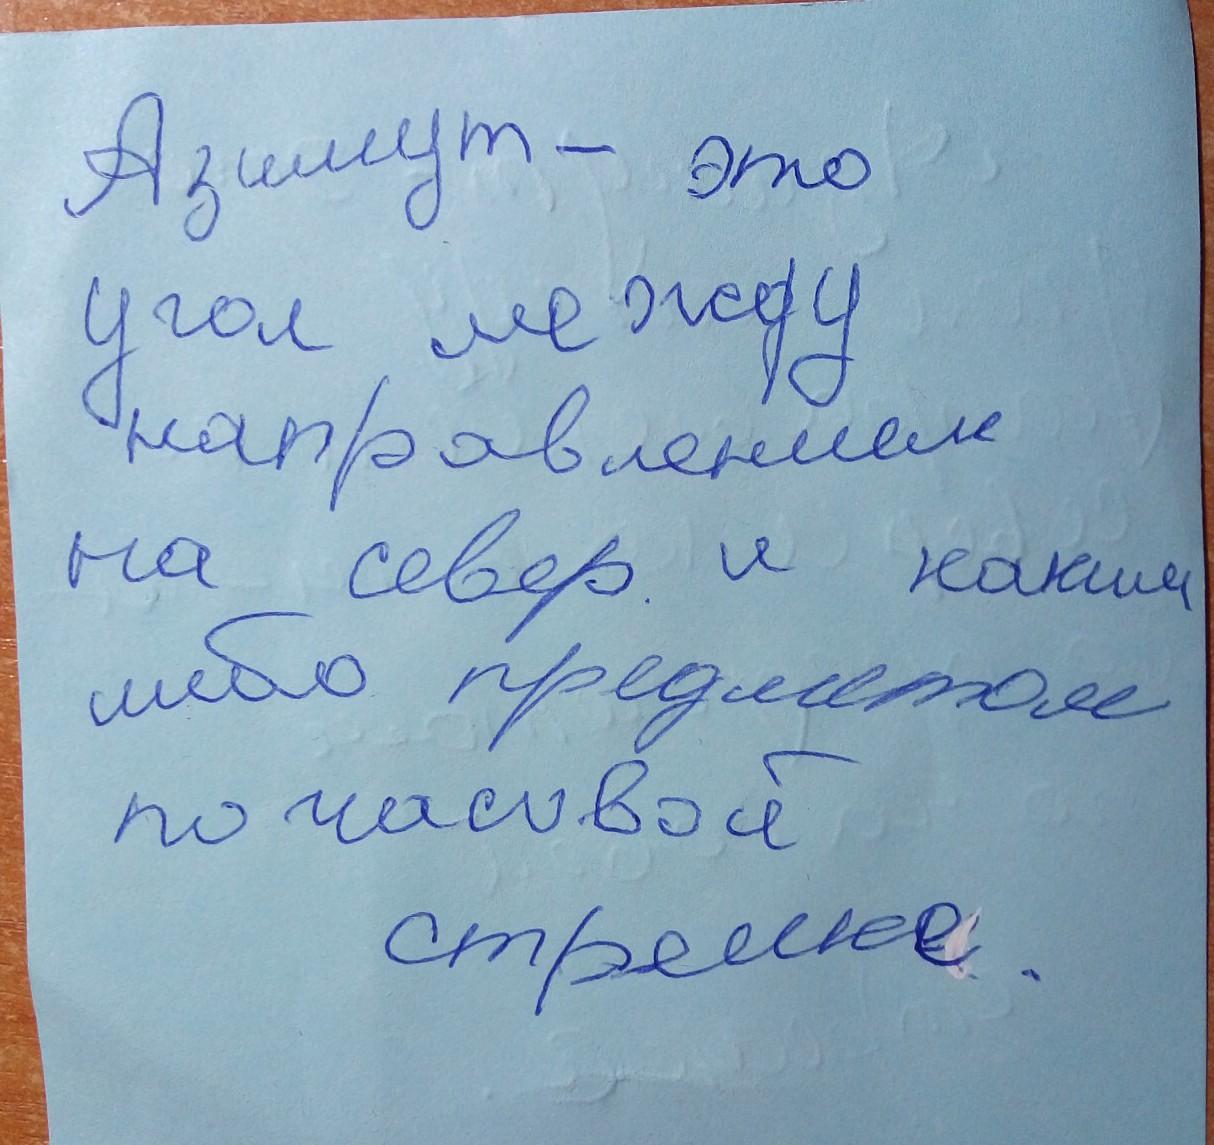 Азимут – это
угол между
направлением
на север и каким
либо предметом
по часовой
стрелке.